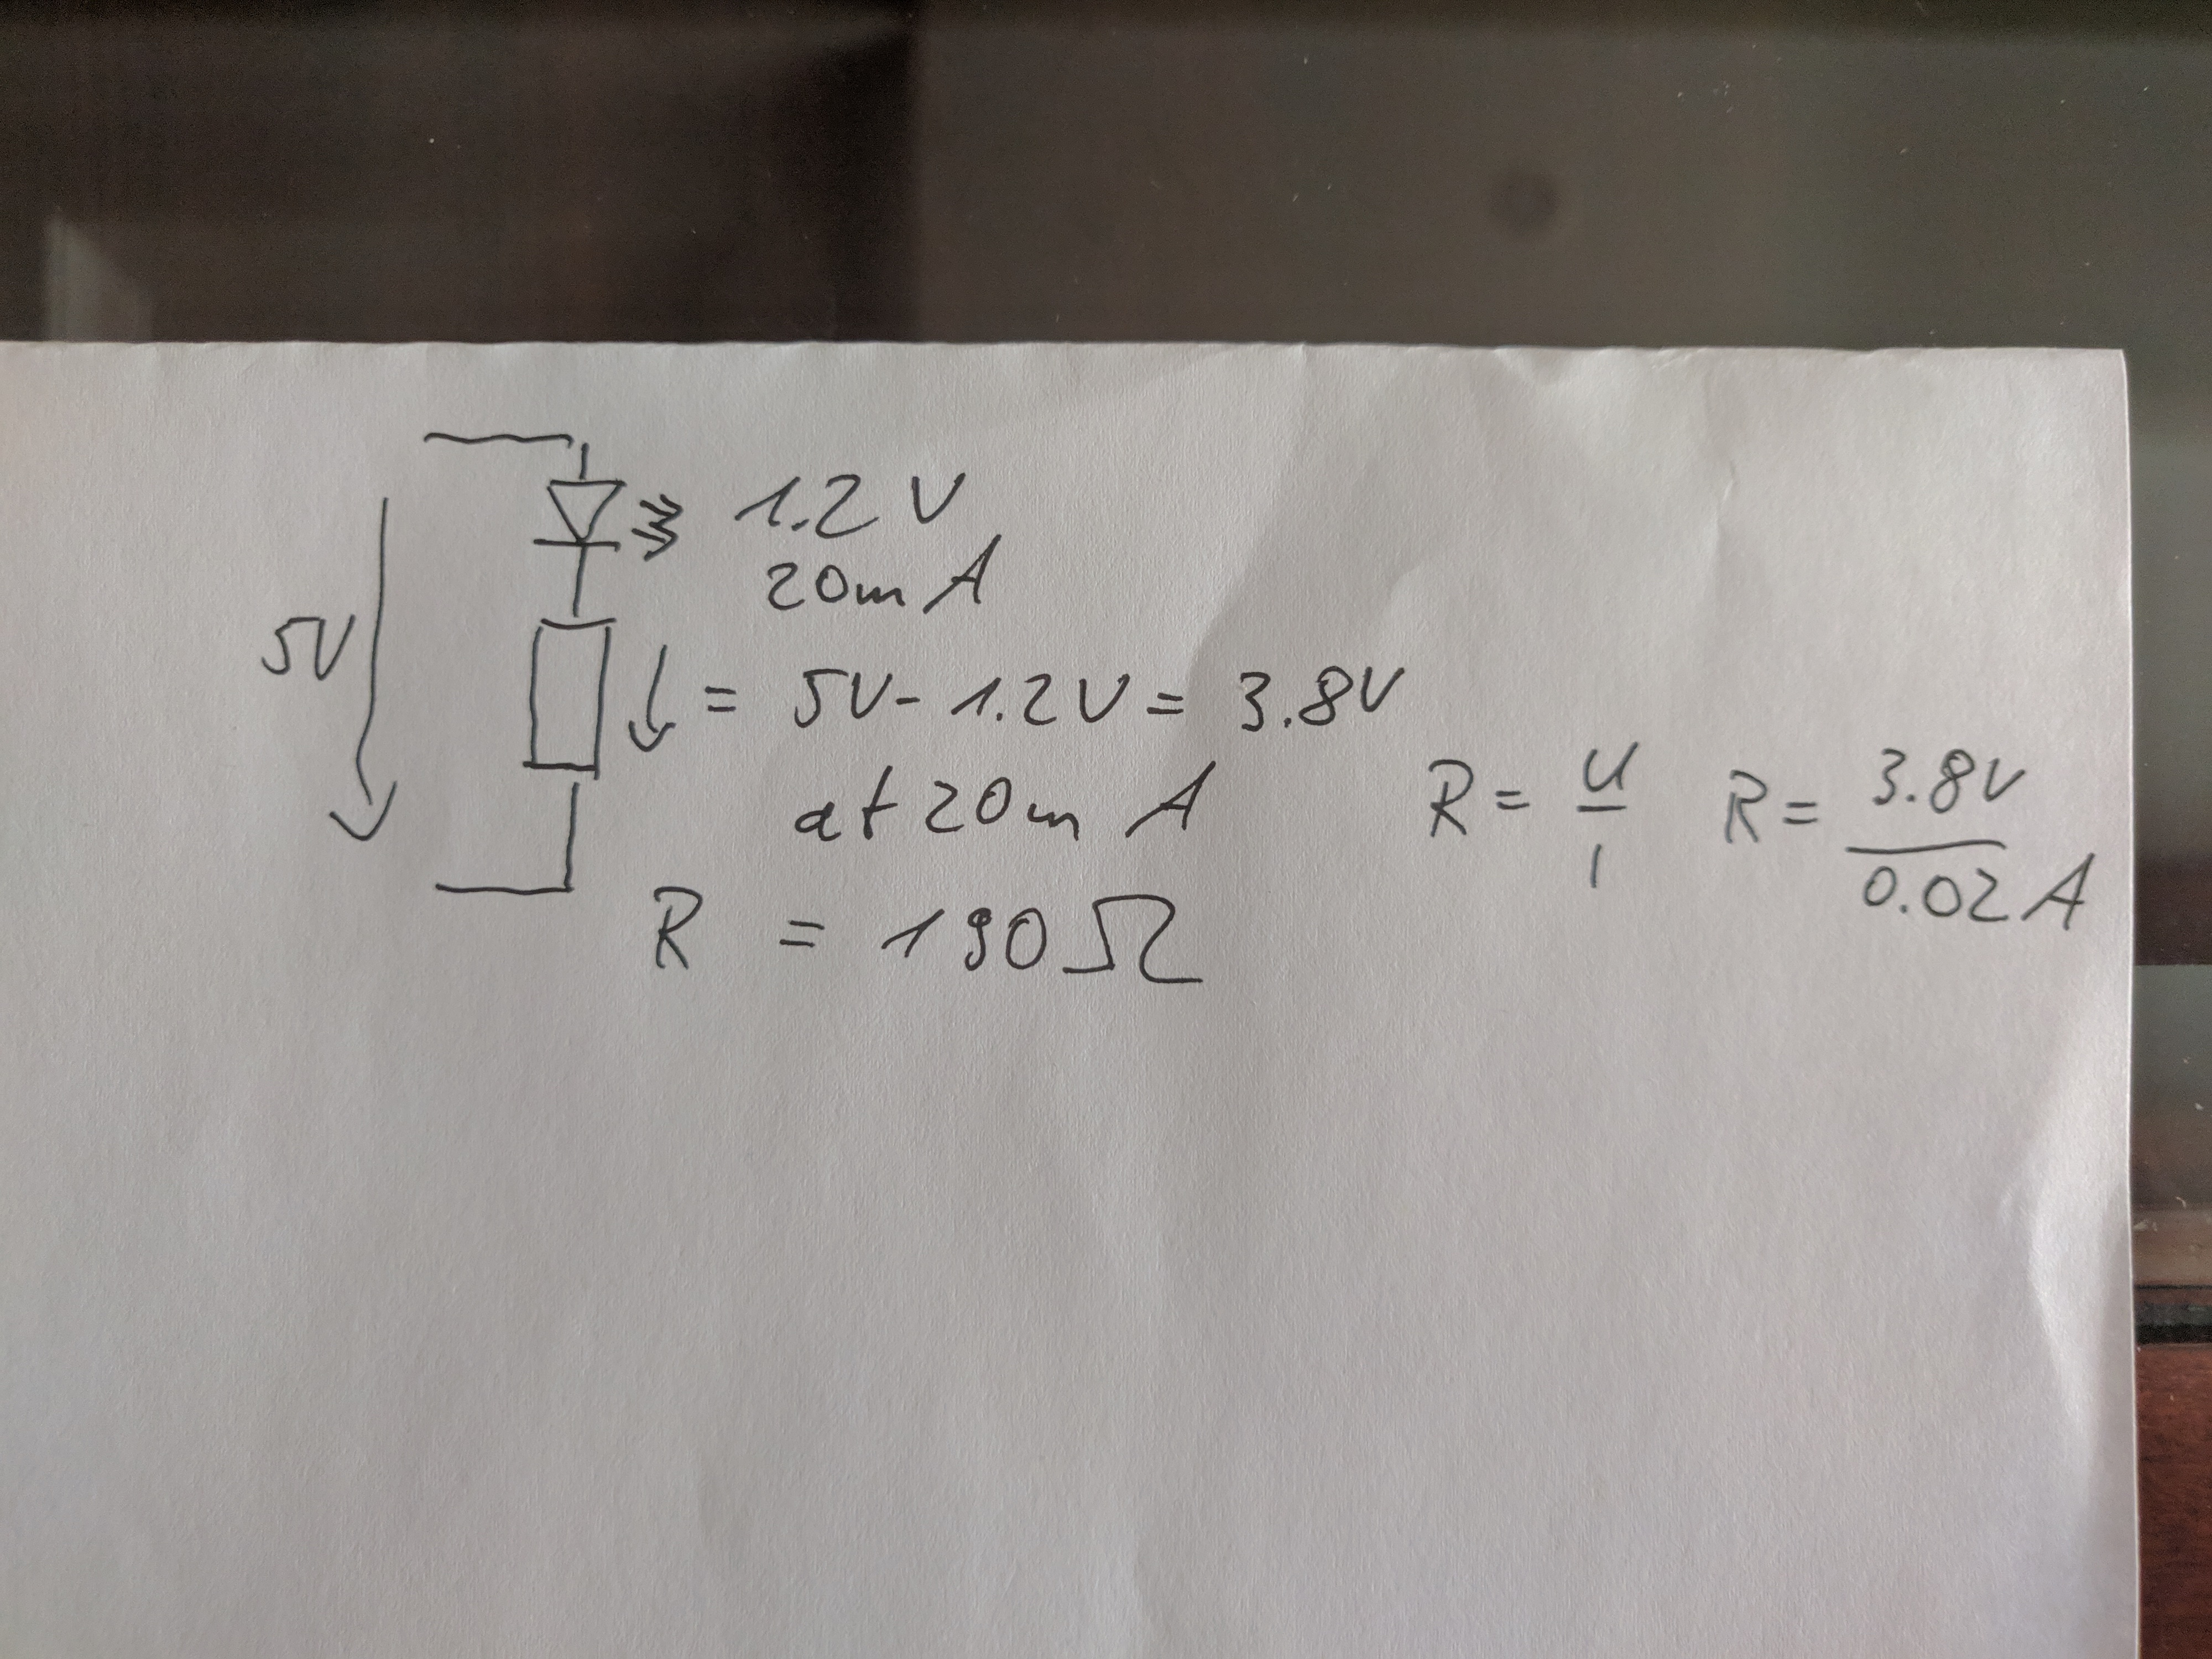 1.2 V
20mA
5V
= 5V - 1.2V = 3.8V
at 20mA
R = U/I R = 3.8V/0.02A
R = 190Ω